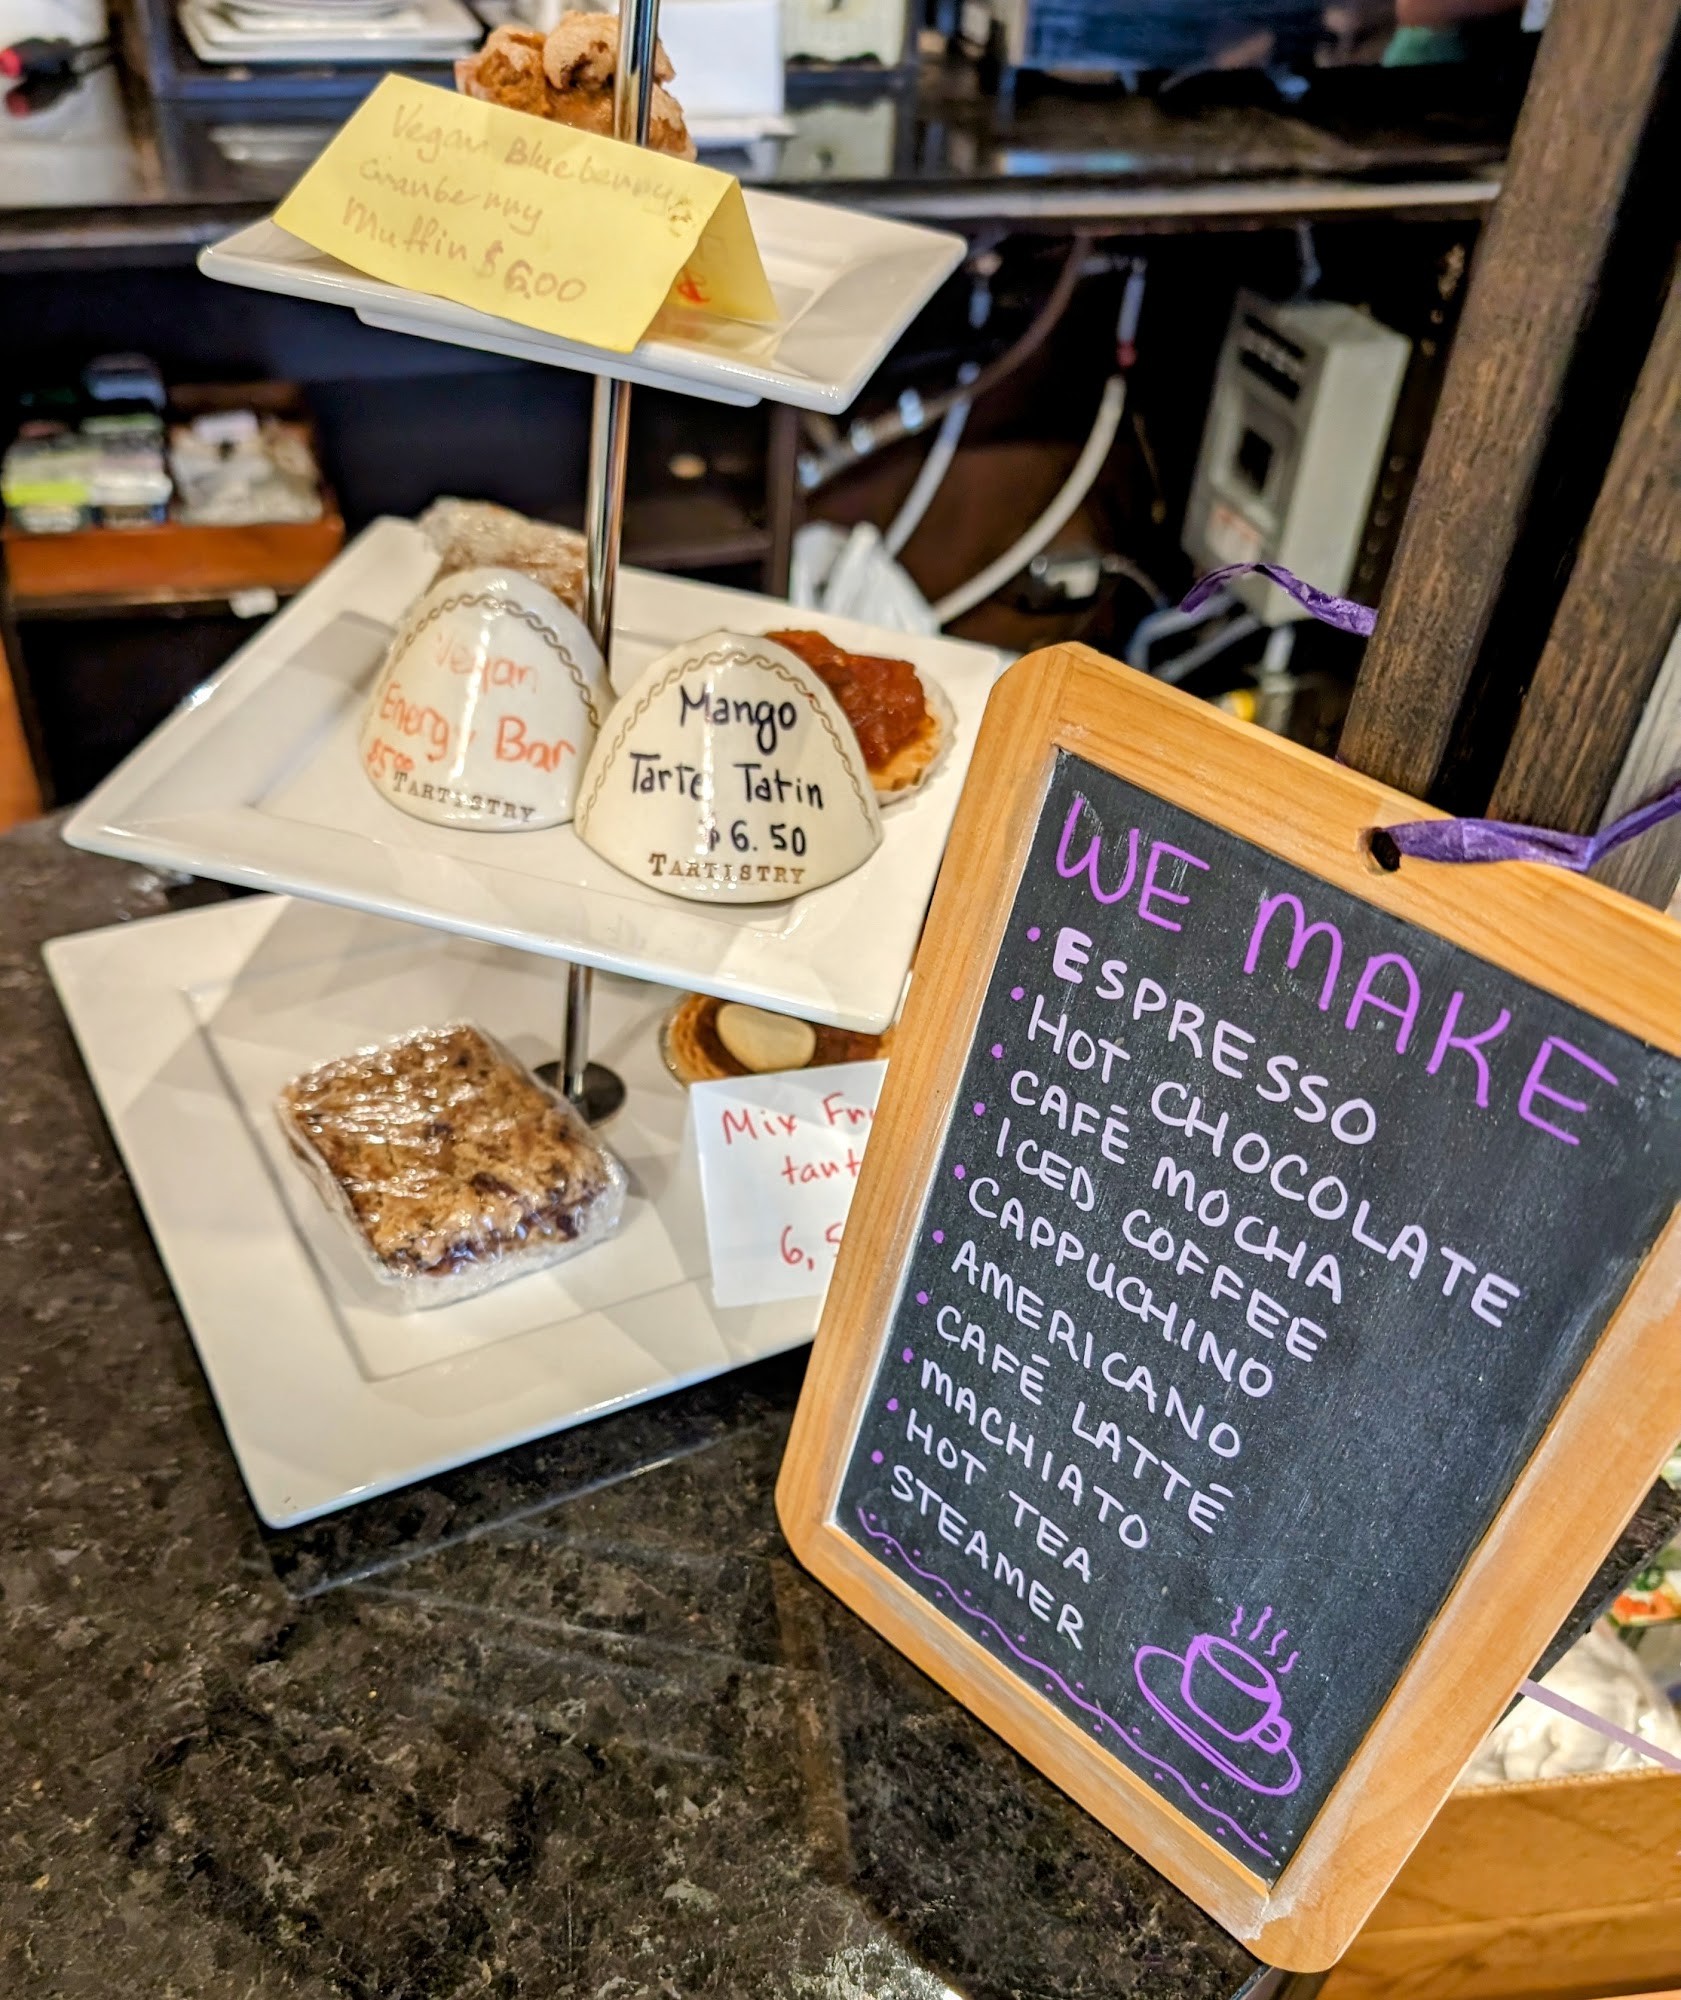 Vegan Blueberry &
Cranberry
Muffin $6.00
Vegan
Energy Bar
$5.00
TARTISTRY
Mango
Tarte Tatin
$6.50
TARTISTRY
Mix
6,
WE MAKE
• ESPRESSO
• HOT CHOCOLATE
• CAFÉ MOCHA
• ICED COFFEE
• CAPPUCHINO
• AMERICANO
• CAFÉ LATTÉ
• MACHIATO
• HOT TEA
• STEAMER